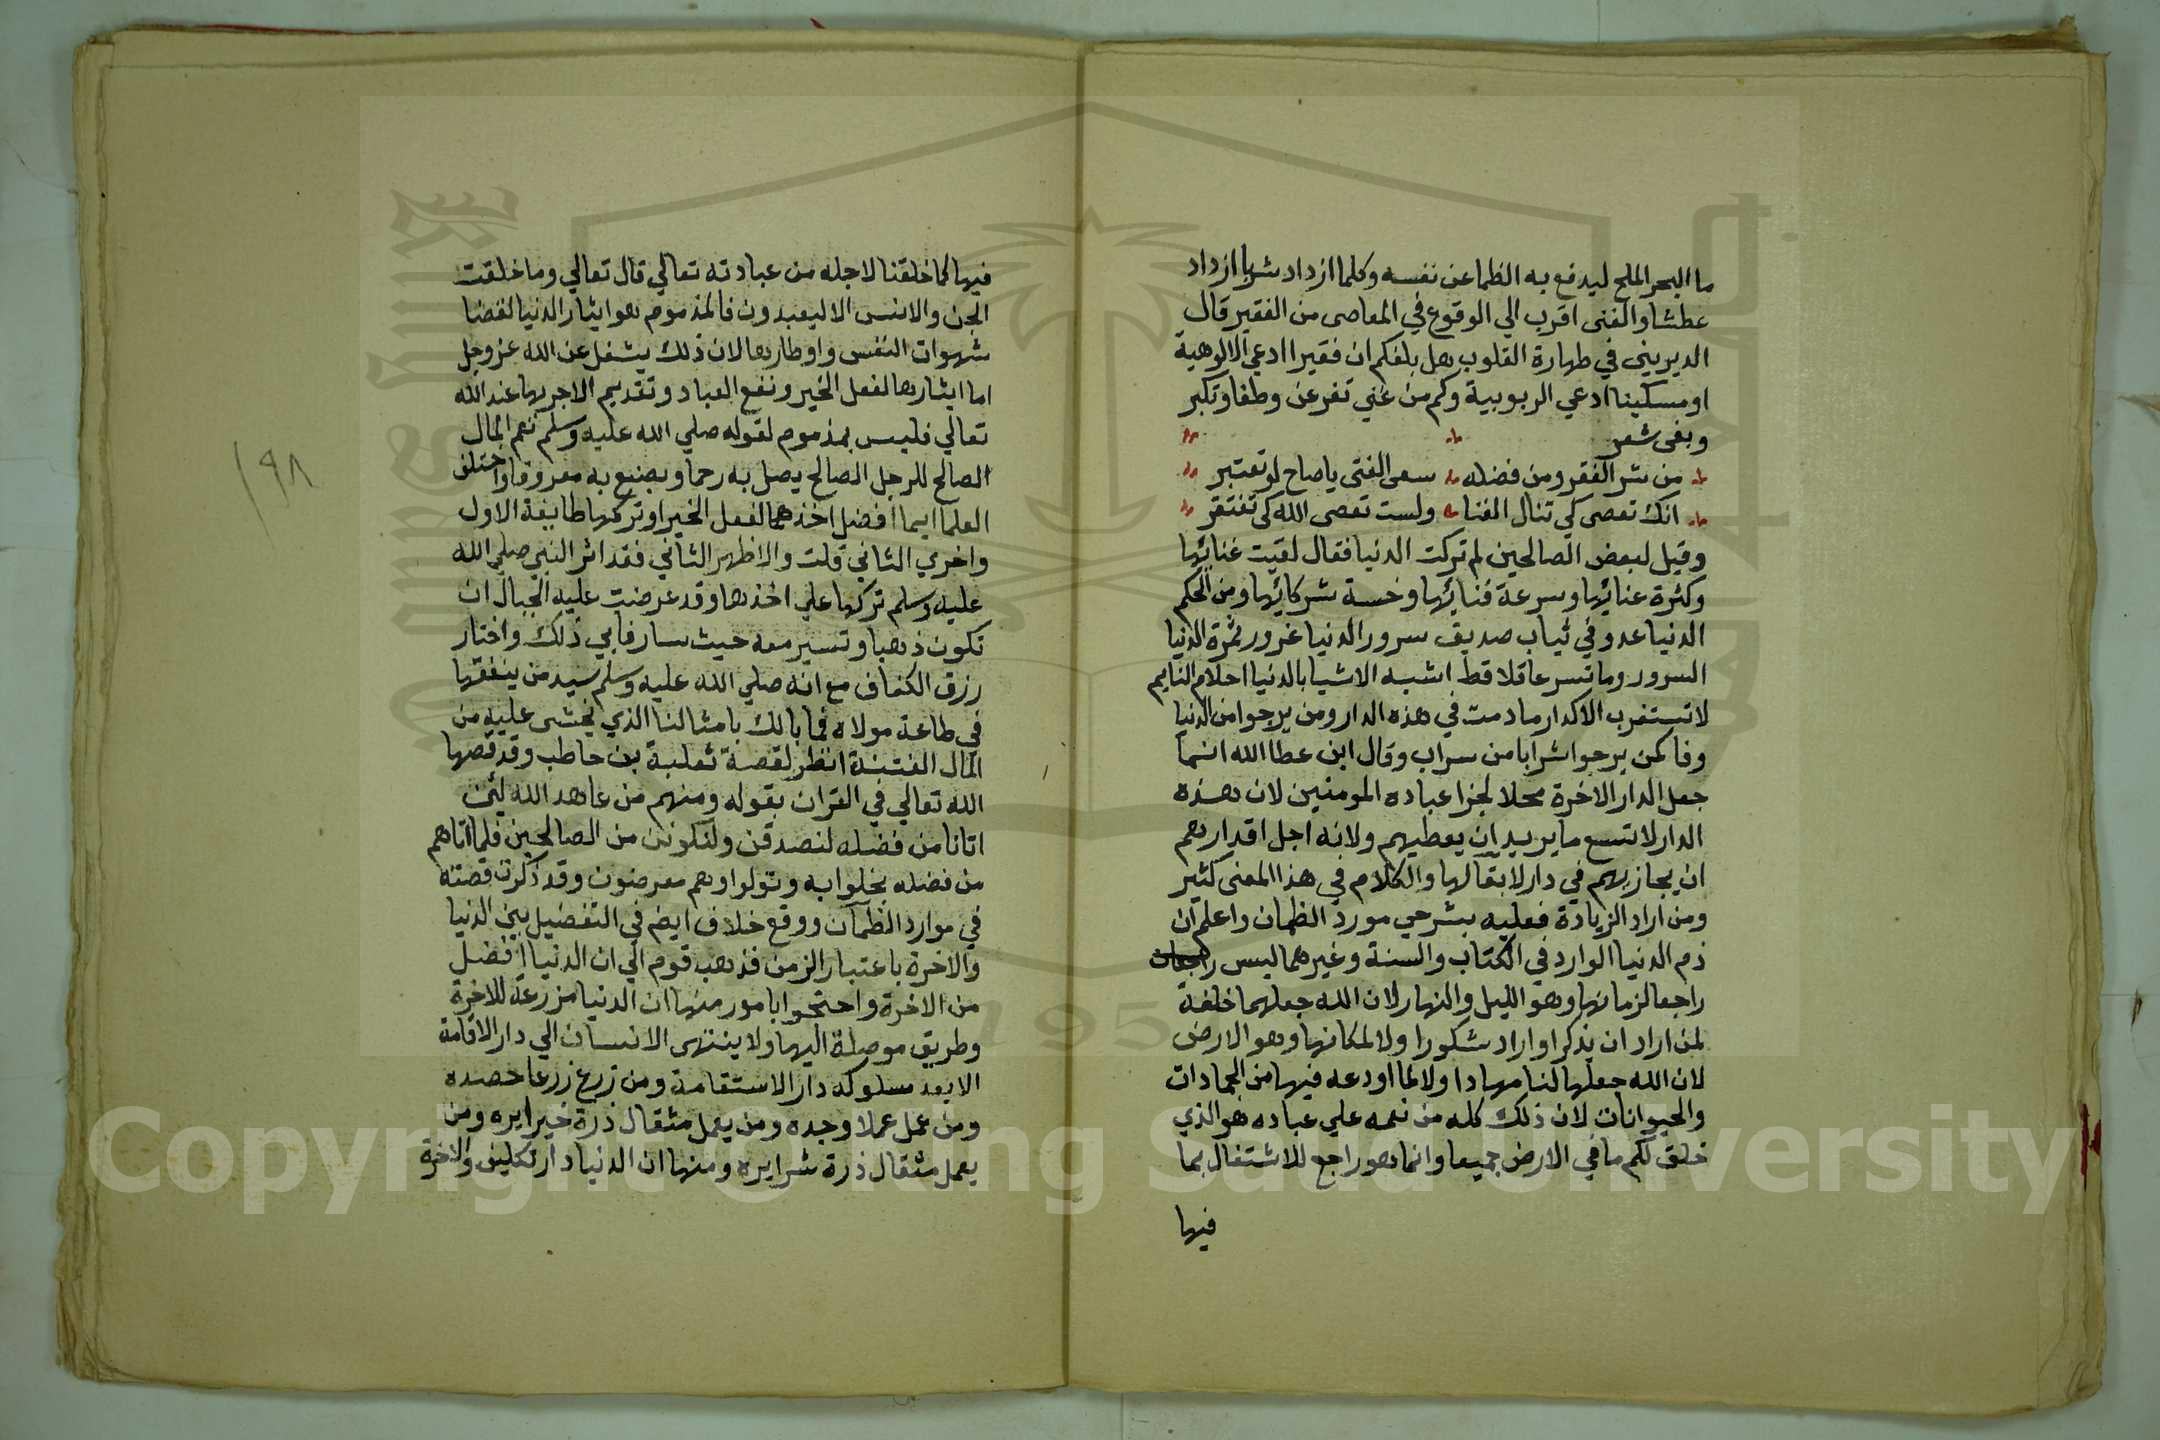 ما البحر المالح ليدفع به الظما عن نفسه وكلما ازداد شربا ازداد
عطشا والغنى اقرب الي الوقوع في المعاصى من الفقير قال
الديرينى في طهارة القلوب هل بلغكم ان فقيرا ادعي الالوهية
او مسكينا ادعي الربوبية وكم من غني تفرعن وطغا وتكبر
وبغى شعر
من شرالفقر ومن فضله سعى الفتى ياصاح لو تعتبر
انك تعصى كي تنال الغنا ولست تعصى الله كي تفتقر
وقيل لبعض الصالحين لم تركت الدنيا فقال لقيت غنائها
وكثرة عنائها وسرعة فنائها وخسة شركائها ومن الحكم
الدنيا عدو في ثياب صديق سرور الدنيا غرور ثمرة الدنيا
السرور وما تسر عاقلا قط اشبه الاشيا بالدنيا احلام النايم
لا تستغرب الاكدار مادمت في هذه الدار ومن يرجوا من الدنيا
وفا كمن يرجوا شرابا من سراب وقال ابن عطا الله انما
جعل الدار الاخرة محلا لجزا عباده المومنين لان هذه
الدار لا تسع ما يريد ان يعطيهم ولانه اجل اقدارهم
ان يجازيهم في دار لا بقا لها والكلام في هذا المعنى كثير
ومن اراد الزيادة فعليه بشرحي مورد الظمان واعلم ان
ذم الدنيا الوارد في الكتاب والسنة وغيرهما ليس
راجعا لزمانها وهو الليل والنهار لان الله جعلهما خلفة
لمن اراد ان يذكر او اراد شكورا ولا لمكانها وهو الارض
لان الله جعلها لنا مهادا ولا لما اودعه فيها من الجمادات
والحيوانات لان ذلك كله من نعمه علي عباده هو الذي
خلق لكم ما في الارض جميعا وانما هو راجع للاشتغال بما
فيها
فيها كما خلقنا لاجله من عبادته تعالي قال تعالي وما خلقت
الجن والانس الا ليعبدون فالمذموم هو ايثار الدنيا لقضا
شهوات النفس واوطارها لان ذلك يشغل عن الله عز وجل
اما ايثارها لفعل الخير ونفع العباد وتقديم الاجر بها عند الله
تعالي فليس بمذموم لقوله صلي الله عليه وسلم نعم المال
الصالح للرجل الصالح يصل به رحما ويصنع به معروفا واختلف
العلما ايما افضل اخذهما لفعل الخير او تركها طايفة الاول
واخري الثاني قلت والاظهر الثاني فقد اثر النبي صلي الله
عليه وسلم تركها علي اخذها وقد عرضت عليه الجبال ان
تكون ذهبا وتسير معه حيث سار فابي ذلك واختار
رزق الكفاف مع انه صلي الله عليه وسلم سيد من ينفقها
في طاعة مولاه فما بالك بامثالنا الذي يخشى عليه من
المال الفتنة انظر لقصة ثعلبة بن حاطب وقد قصها
الله تعالي في القران بقوله ومنهم من عاهد الله لئن
اتانا من فضله لنصدقن ولنكونن من الصالحين فلما اتاهم
من فضله بخلوا به وتولوا وهم معرضون وقد ذكرت قصته
في موارد الظمآن ووقع خلاف ايضا في التفضيل بين الدنيا
والاخرة باعتبار الزمن فذهب قوم الي ان الدنيا افضل
من الاخرة واحتجوا بامور منها ان الدنيا مزرعة للاخرة
وطريق موصلة اليها ولا ينتهى الانسان الي دار الاقامة
الا بعد سلوكه دار الاستقامة ومن زرع زرعا حصده
ومن عمل عملا وجده ومن يعمل مثقال ذرة خيرا يره ومن
يعمل مثقال ذرة شرا يره ومنها ان الدنيا دار تكليف والاخرة
١٩٨
Copyright © King Saud University
1957